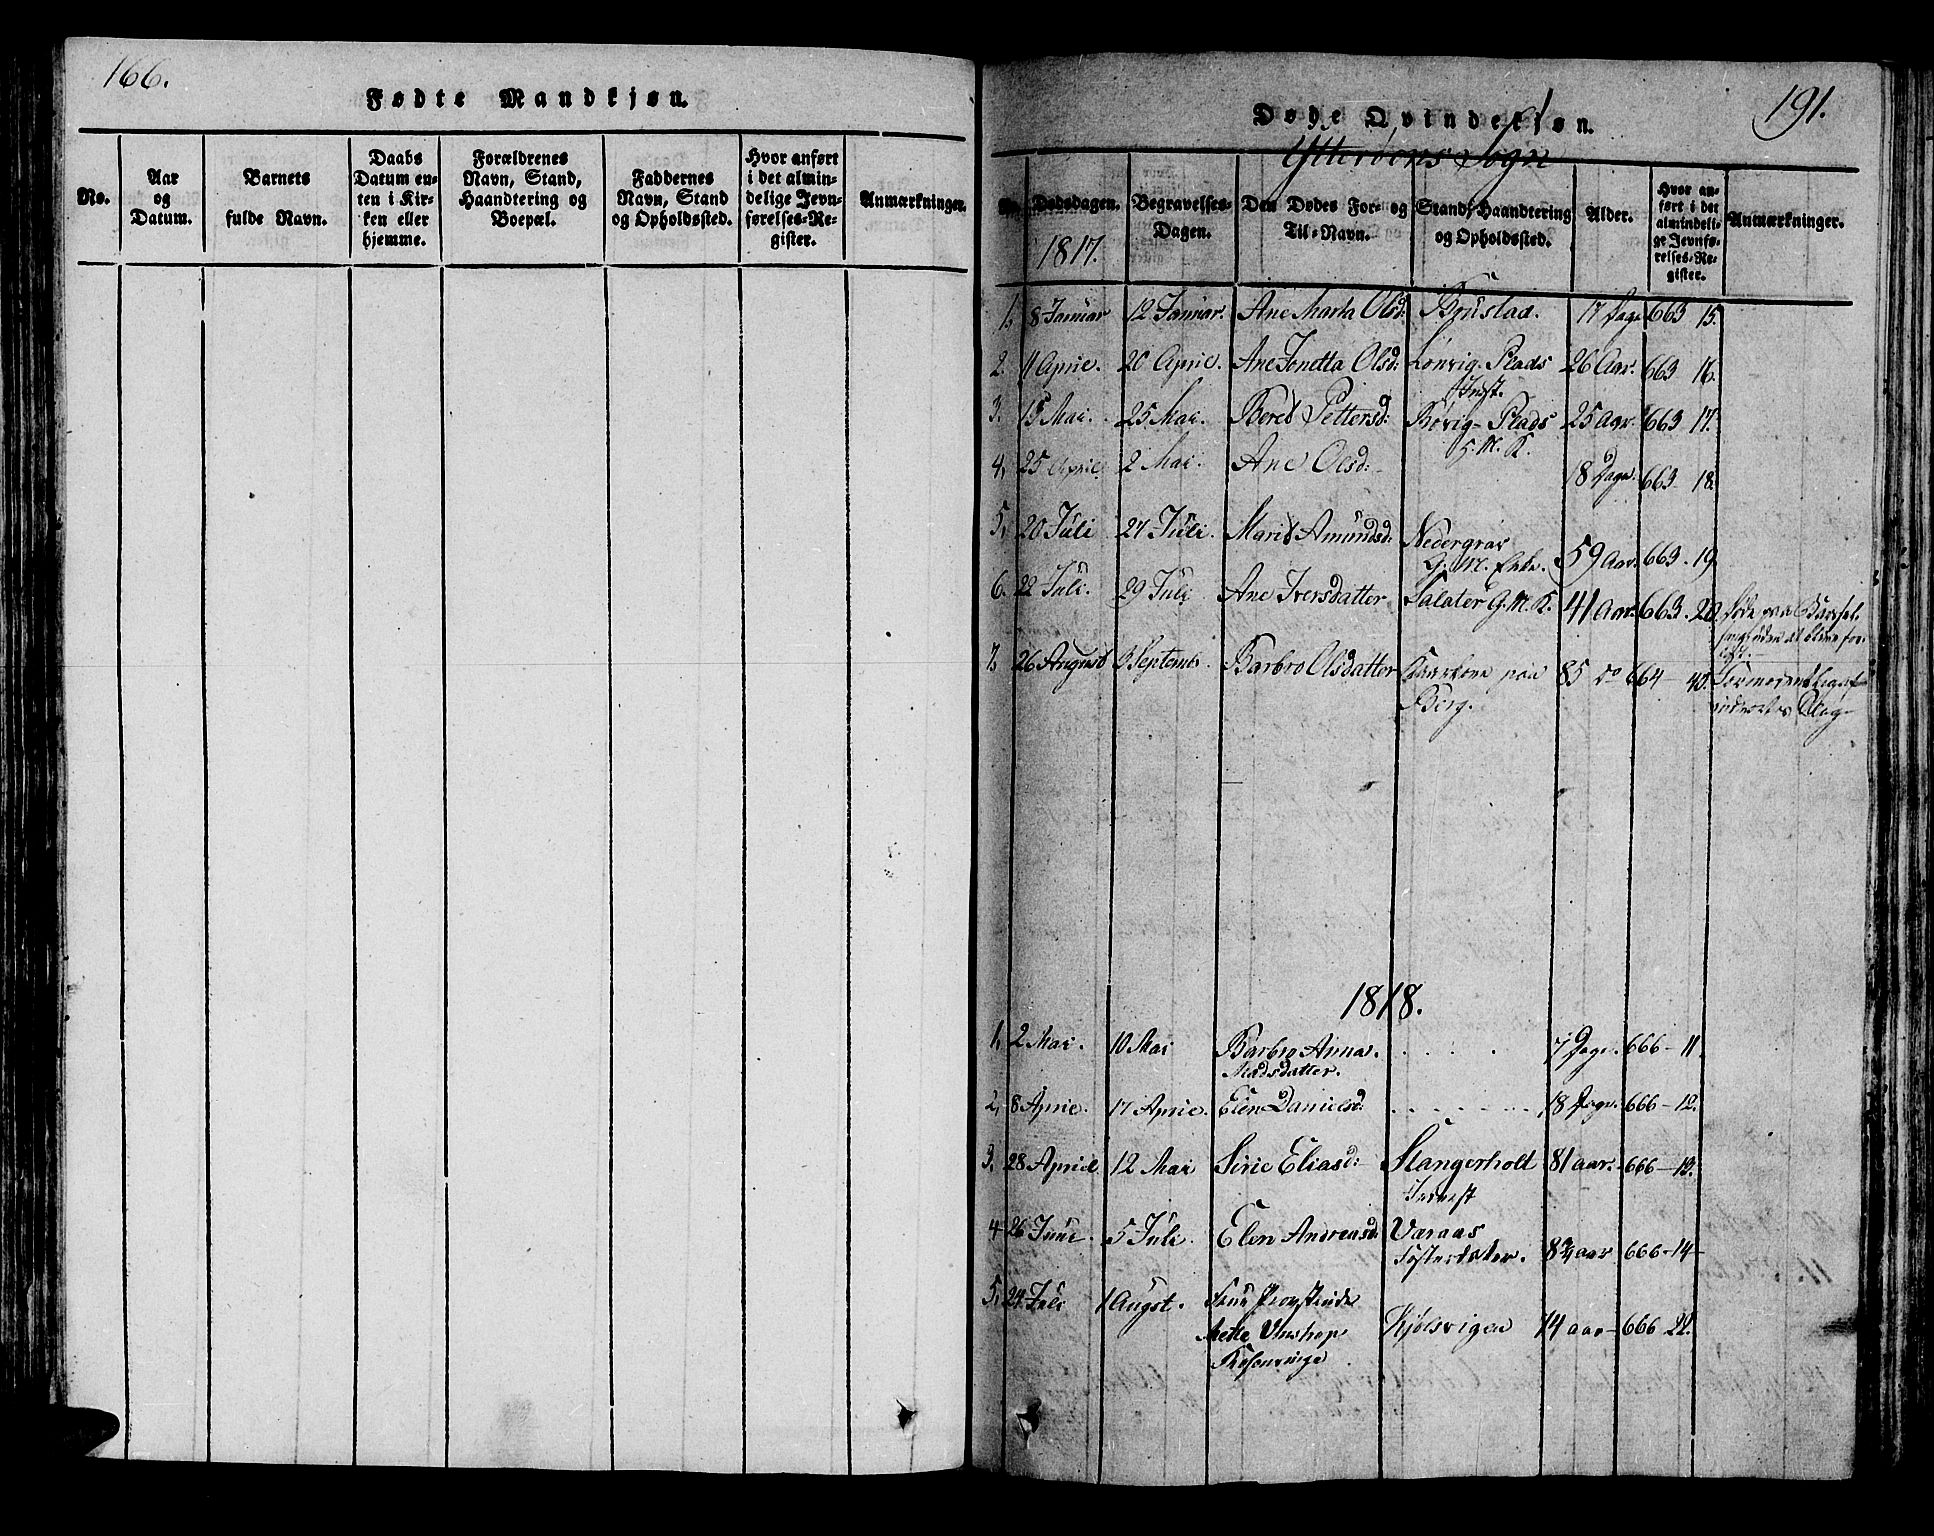 166.
Fødte Mandkjøn.
No.
Aar
og
Datum.
Barnets
fulde Navn.
Daabs
Datum en-
ten i Kir-
ken eller
hjemme.
Forældrenes
Navn, Stand,
Haandtering og
Boepæl.
Faddernes
Navn, Stand
og Opholdssted.
Hvor anført
i det almin-
delige Jevn-
førelses-Re-
gister.
Anmærkninger.
191.
Døde Qvindekjøn.
Ytterøens Sogn
Dødsdagen.
1817.
Begravelses-
Dagen.
Den Dødes For- og
Til-Navn.
Stand, Haandtering
og Opholdssted.
Alder.
Hvor an-
ført i det
almindeli-
ge Jevnfø-
relses-Re-
gister.
Anmærkninger.
1. 8 Januar 12 Januar. Ane Marta Olsd: Brustad. 17 Dage 663 15.
2. 11 April. 20 April. Ane Jonetta Olsd: Lønvig-Plads 26 Aar. 663 16.
Inst.
3. 15 Mai. 25 Mai. Bered Pettersd: Børvig-Plads 25 Aar. 663 17.
G. M. K.
4, 25 April. 2 Mai. Ane Olsd: 18 Dage. 663 18.
5, 20 Juli 27 Juli. Marit Amundsd: Nedergrav 59 Aar. 663. 19.
G. M. Enke.
6. 22 Juli. 29 Juli Ane Iversdatter Salater G. M. K. 41 Aar. 663. 20. døde paa Barsel-
seng uden at blive for-
løst.
7. 26 August 3 Septemb. Barbro Olsdatter paa 85 do 664 - 40.
Berg.
1818.
1, 2 Mai. 10 Mai Barbro Anna . . . . 7 Dage. 666 - 11.
Madsdatter.
2, 8 April. 17 April. Elen Danielsd: . . . . . . . 18 Dage. 666 - 12.
3. 28 April 12 Mai Sirie Eliasd: Stangerholt 81 aar. 666 - 13.
Inderst
4 26 Juni. 5 Juli. Elen Andreasd: Varaas
Fosterdatter. 8¾ aar 666 - 14 -
5. 24 Juli 1 August. Frue Provstinde
Mette Kjølsvigen 74 aar - 666 - 22.